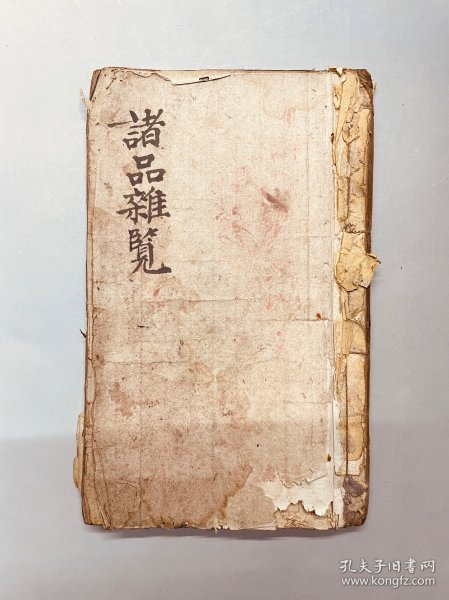 諸品雜覧
孔夫子旧书网
www.kongfz.com